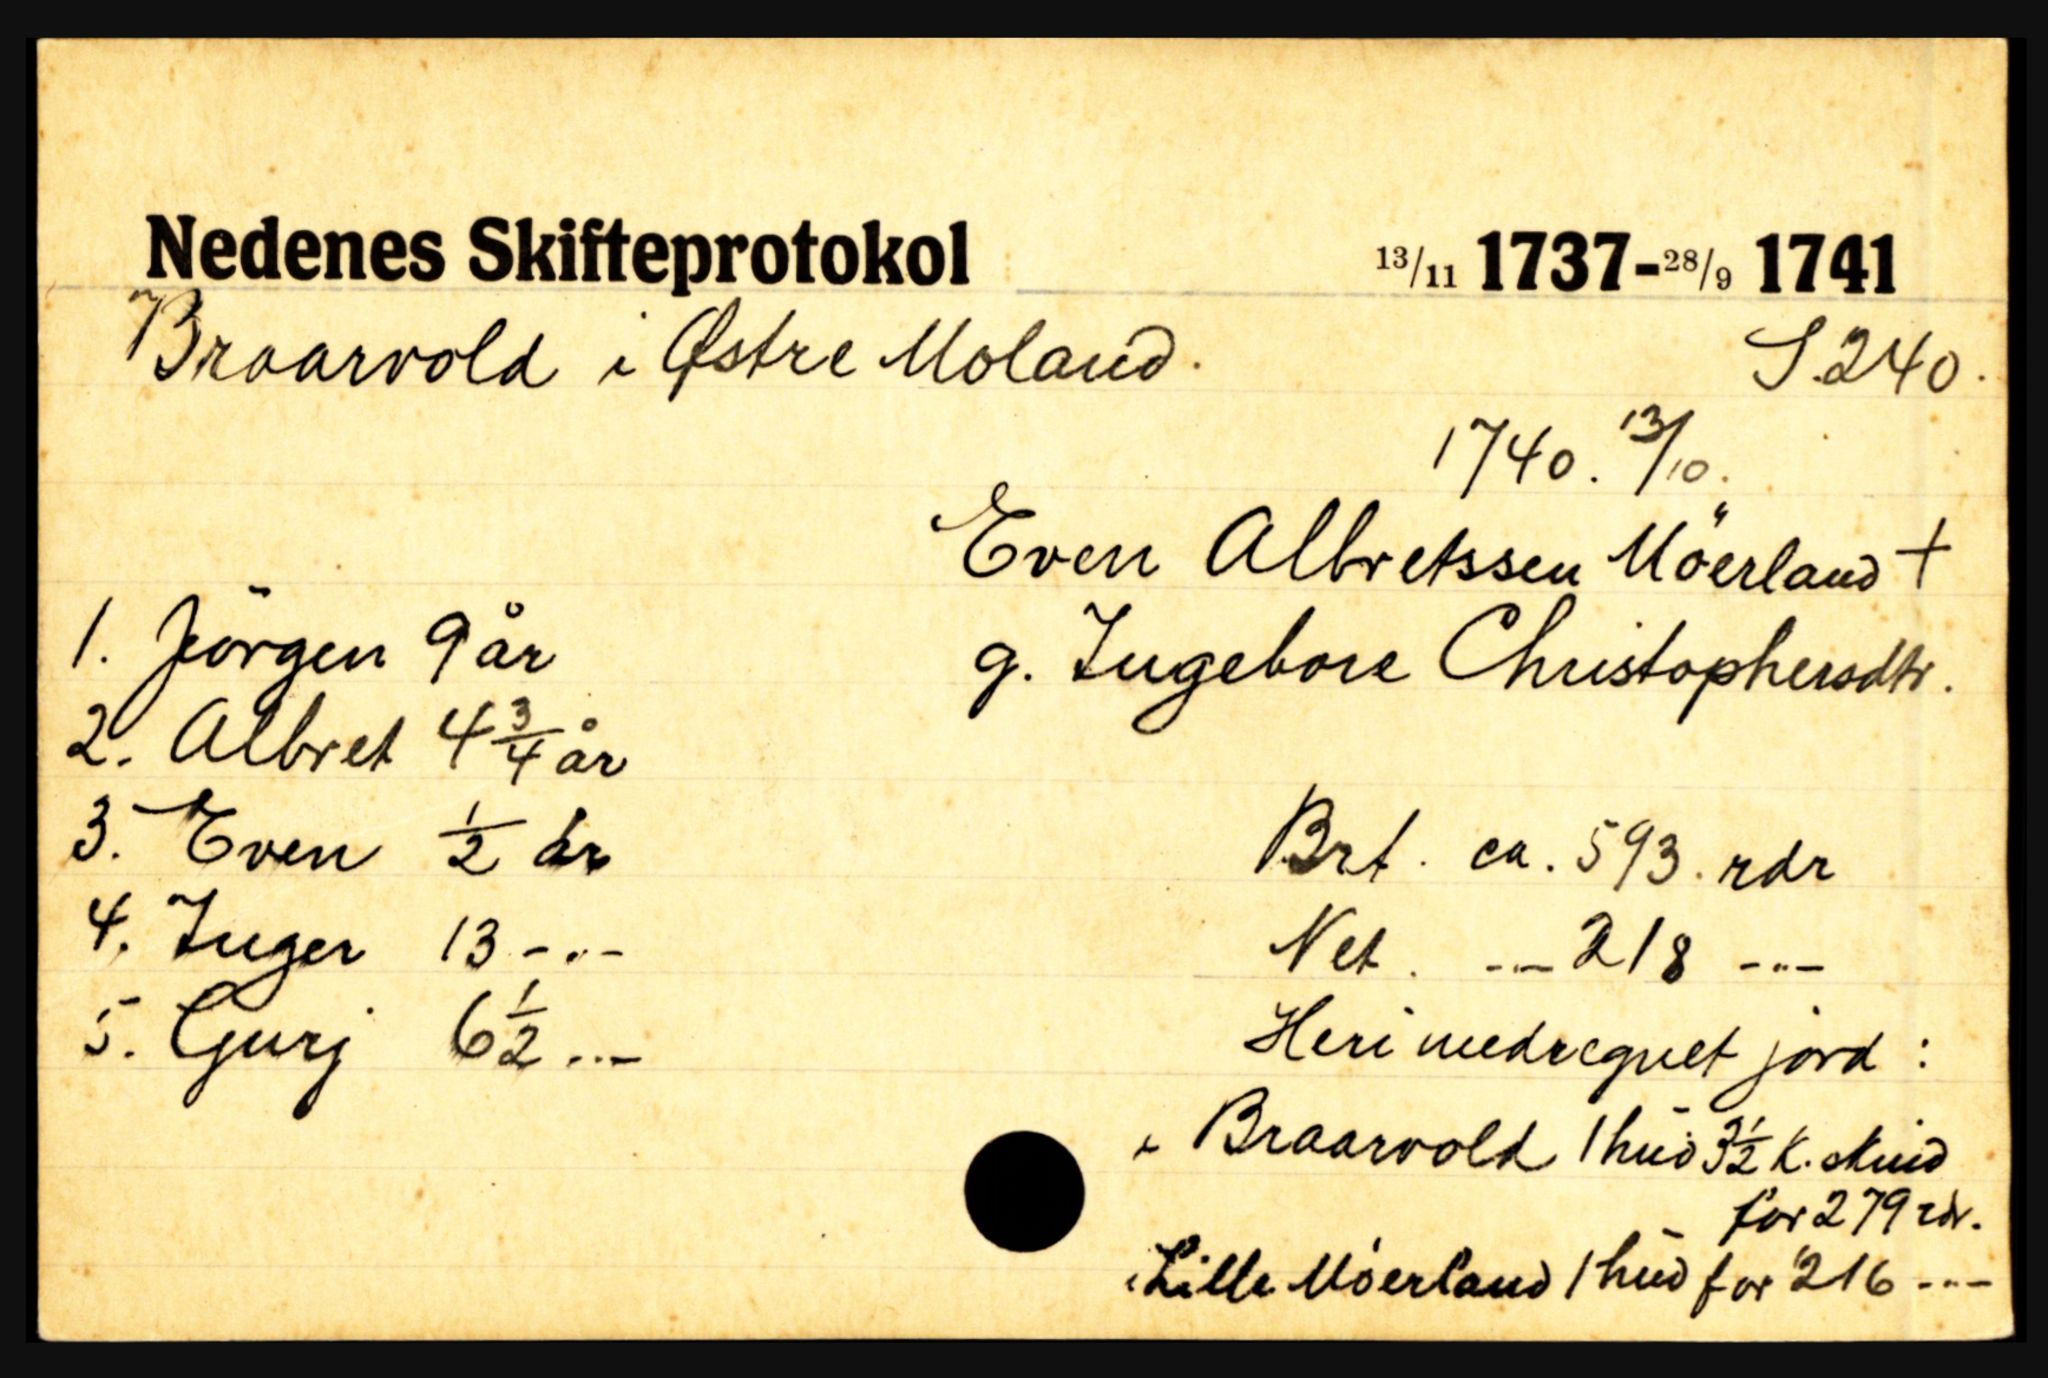 Nedenes Skifteprotokol 13/11 1737-28/9 1741
Braarvold i Østre Moland. S. 240.
1740. 13/10.
Even Albretssen Möerland +
g. Ingebore Christophersdtr.
1. Jörgen 9 år
2. Albret 4 3/4 år
3. Even 1/2 år
4. Inger 13 -"-
5. Gurj 6 1/2 -"-
Brt. ca. 593. rdr
Net. -"- 218 -"-
Heri medregnet jord :
i Braarvold 1 hud 3 1/2 k. skind
for 279 rdr.
i Lille Möerland 1 hud for 216 -"-